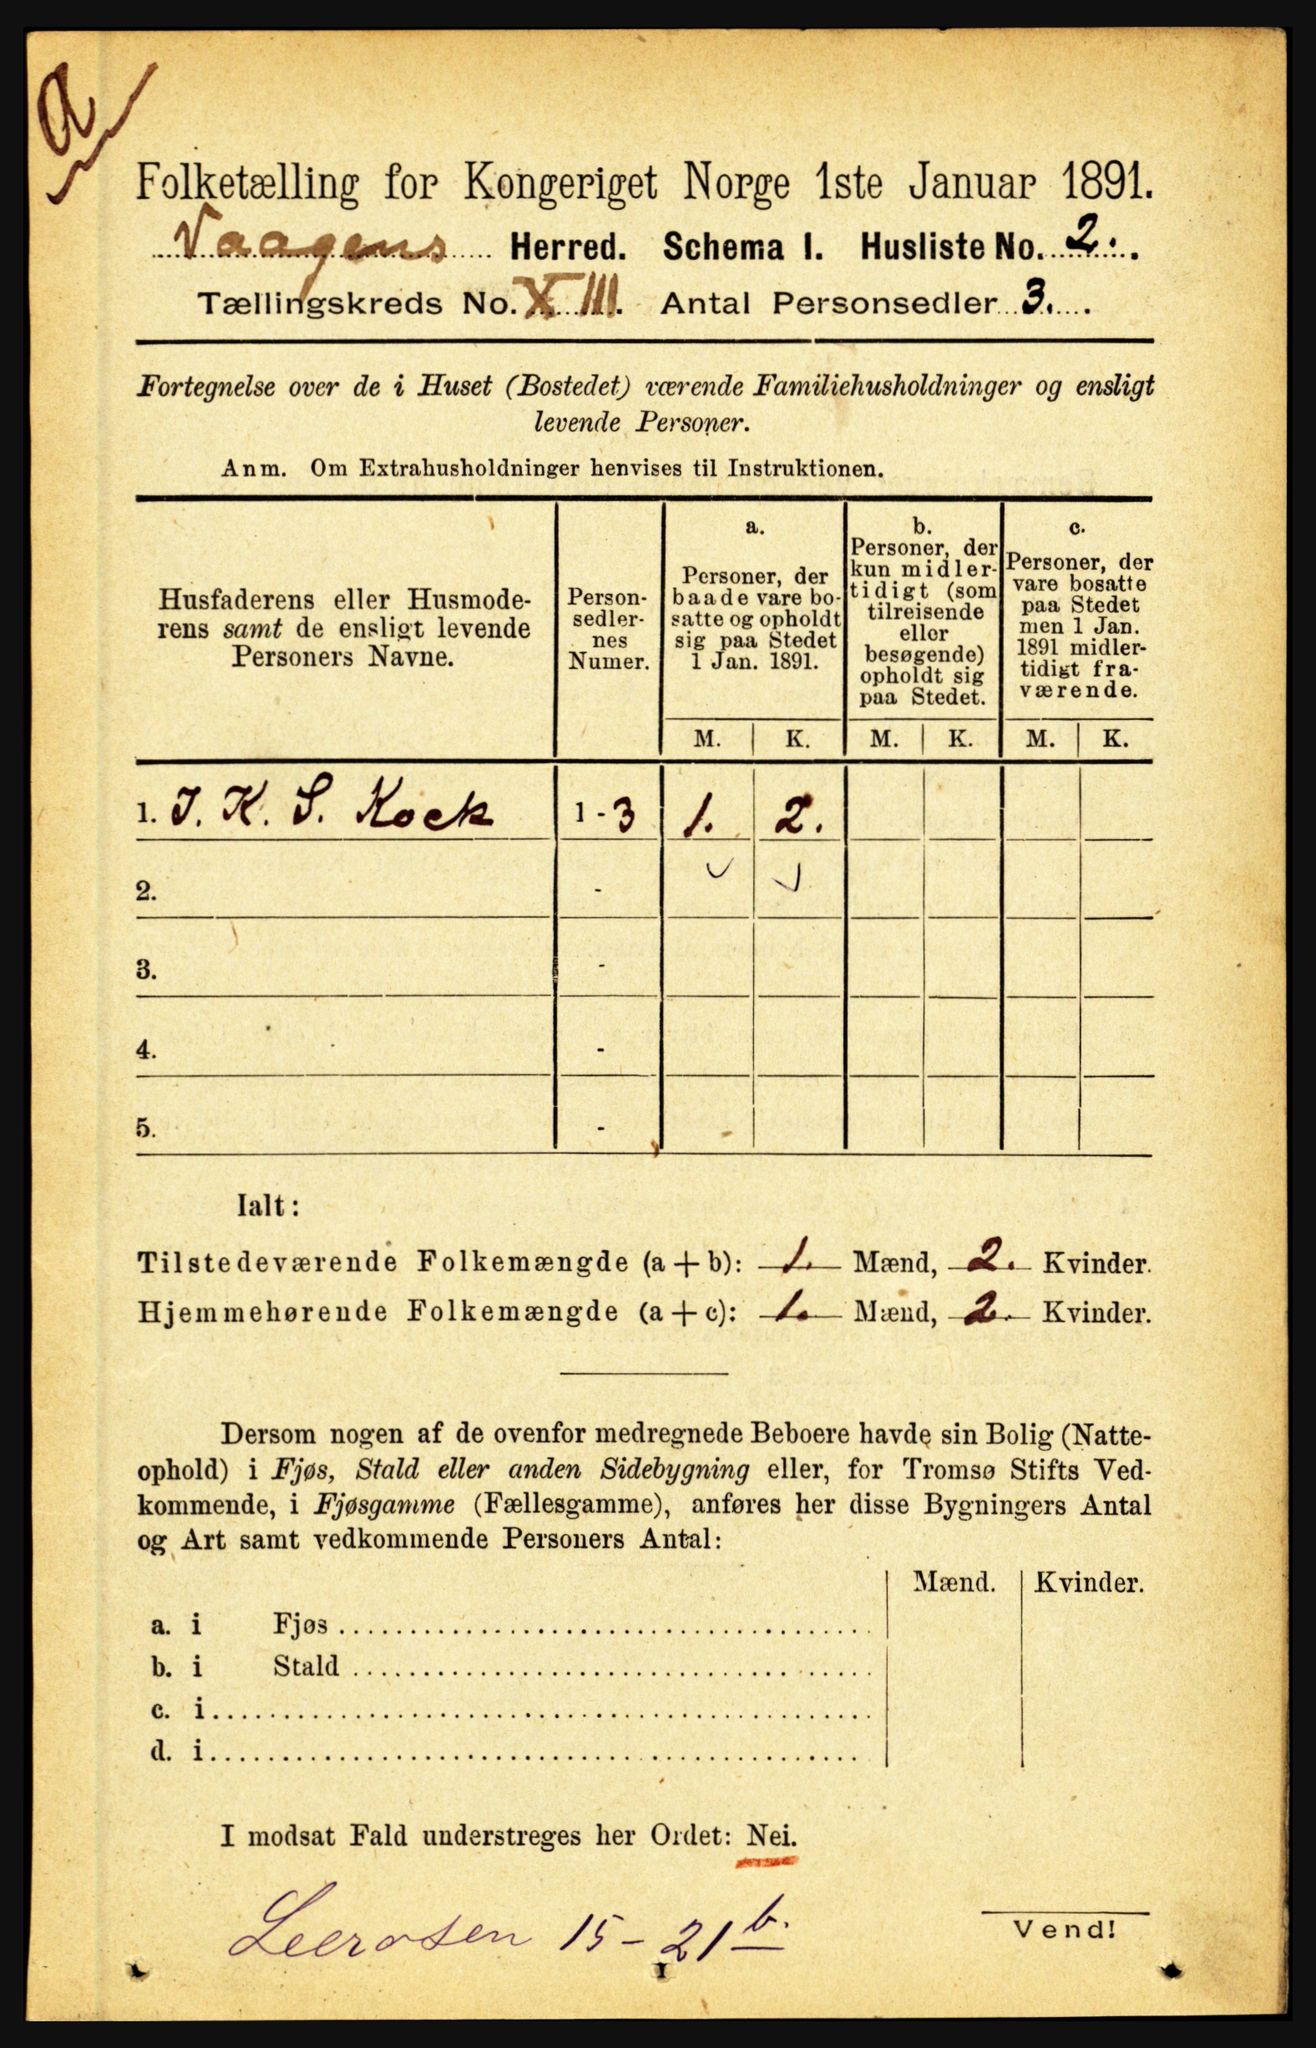 a
Folketælling for Kongeriget Norge 1ste Januar 1891.
Vaagens Herred. Schema I. Husliste No. 2.
Tællingskreds No. XIII. Antal Personsedler 3.
Fortegnelse over de i Huset (Bostedet) værende Familiehusholdninger og ensligt
levende Personer.
Anm. Om Extrahusholdninger henvises til Instruktionen.
Husfaderens eller Husmode-
rens samt de ensligt levende
Personers Navne.
Person-
sedler-
nes
Numer.
a.
Personer, der
baade vare bo-
satte og opholdt
sig paa Stedet
1 Jan. 1891.
b.
Personer, der
kun midler-
tidigt (som
tilreisende
eller
besøgende)
opholdt sig
paa Stedet.
c.
Personer, der
vare bosatte
paa Stedet
men 1 Jan.
1891 midler-
tidigt fra-
værende.
M. K. M. K. M. K.
1. J. K. S. Kock 1 - 3 1. 2.
2. -
3. -
4. -
5. -
Ialt:
Tilstedeværende Folkemængde (a + b): 1. Mænd, 2. Kvinder.
Hjemmehørende Folkemængde (a + c): 1. Mænd, 2. Kvinder.
Dersom nogen af de ovenfor medregnede Beboere havde sin Bolig (Natte-
ophold) i Fjøs, Stald eller anden Sidebygning eller, for Tromsø Stifts Ved-
kommende, i Fjøsgamme (Fællesgamme), anføres her disse Bygningers Antal
og Art samt vedkommende Personers Antal:
Mænd. Kvinder.
a. i Fjøs
b. i Stald
c. i
d. i
I modsat Fald understreges her Ordet: Nei.
15 - 21 b.
Vend!
1